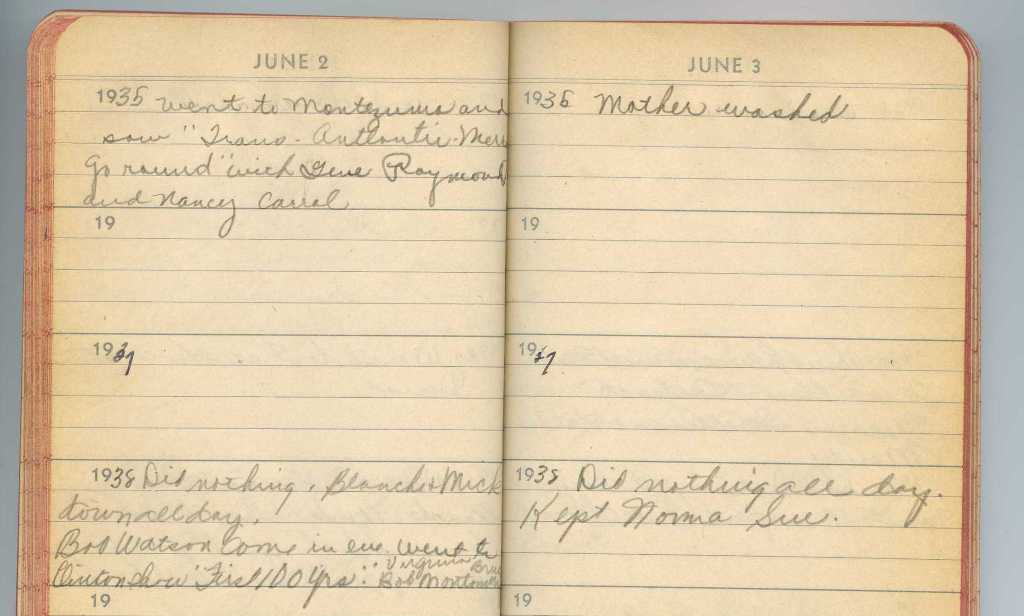 JUNE 2
1935 went to Montezuma and
saw "Trans-Antlantic-Merr
Go round" with Gene Raymond
and Nancy Carral
19
1937
1938 Did nothing. Blanche & Mick
town all day.
Bob Watson come in eve. went to
Clinton show "First 100 Yrs." Virginia Bruce
Bob Montom
19
JUNE 3
1935 Mother washed
19
1937
1938 Did nothing all day.
Kept Norma Sue.
19